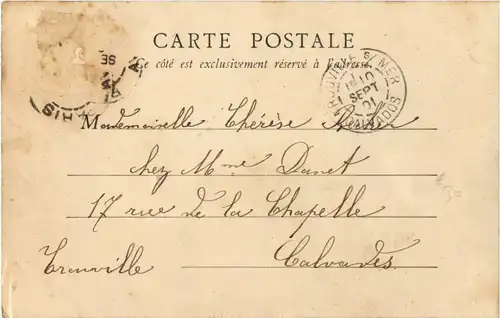 CARTE POSTALE
Ce côté est exclusivement réservé à l'adresse.
TROUVILLE S/ MER
10
SEPT
01
CALVADOS
SE
Mademoiselle Thérèse
chez Mme Danet
17 rue de la Chapelle
Trouville Calvados.